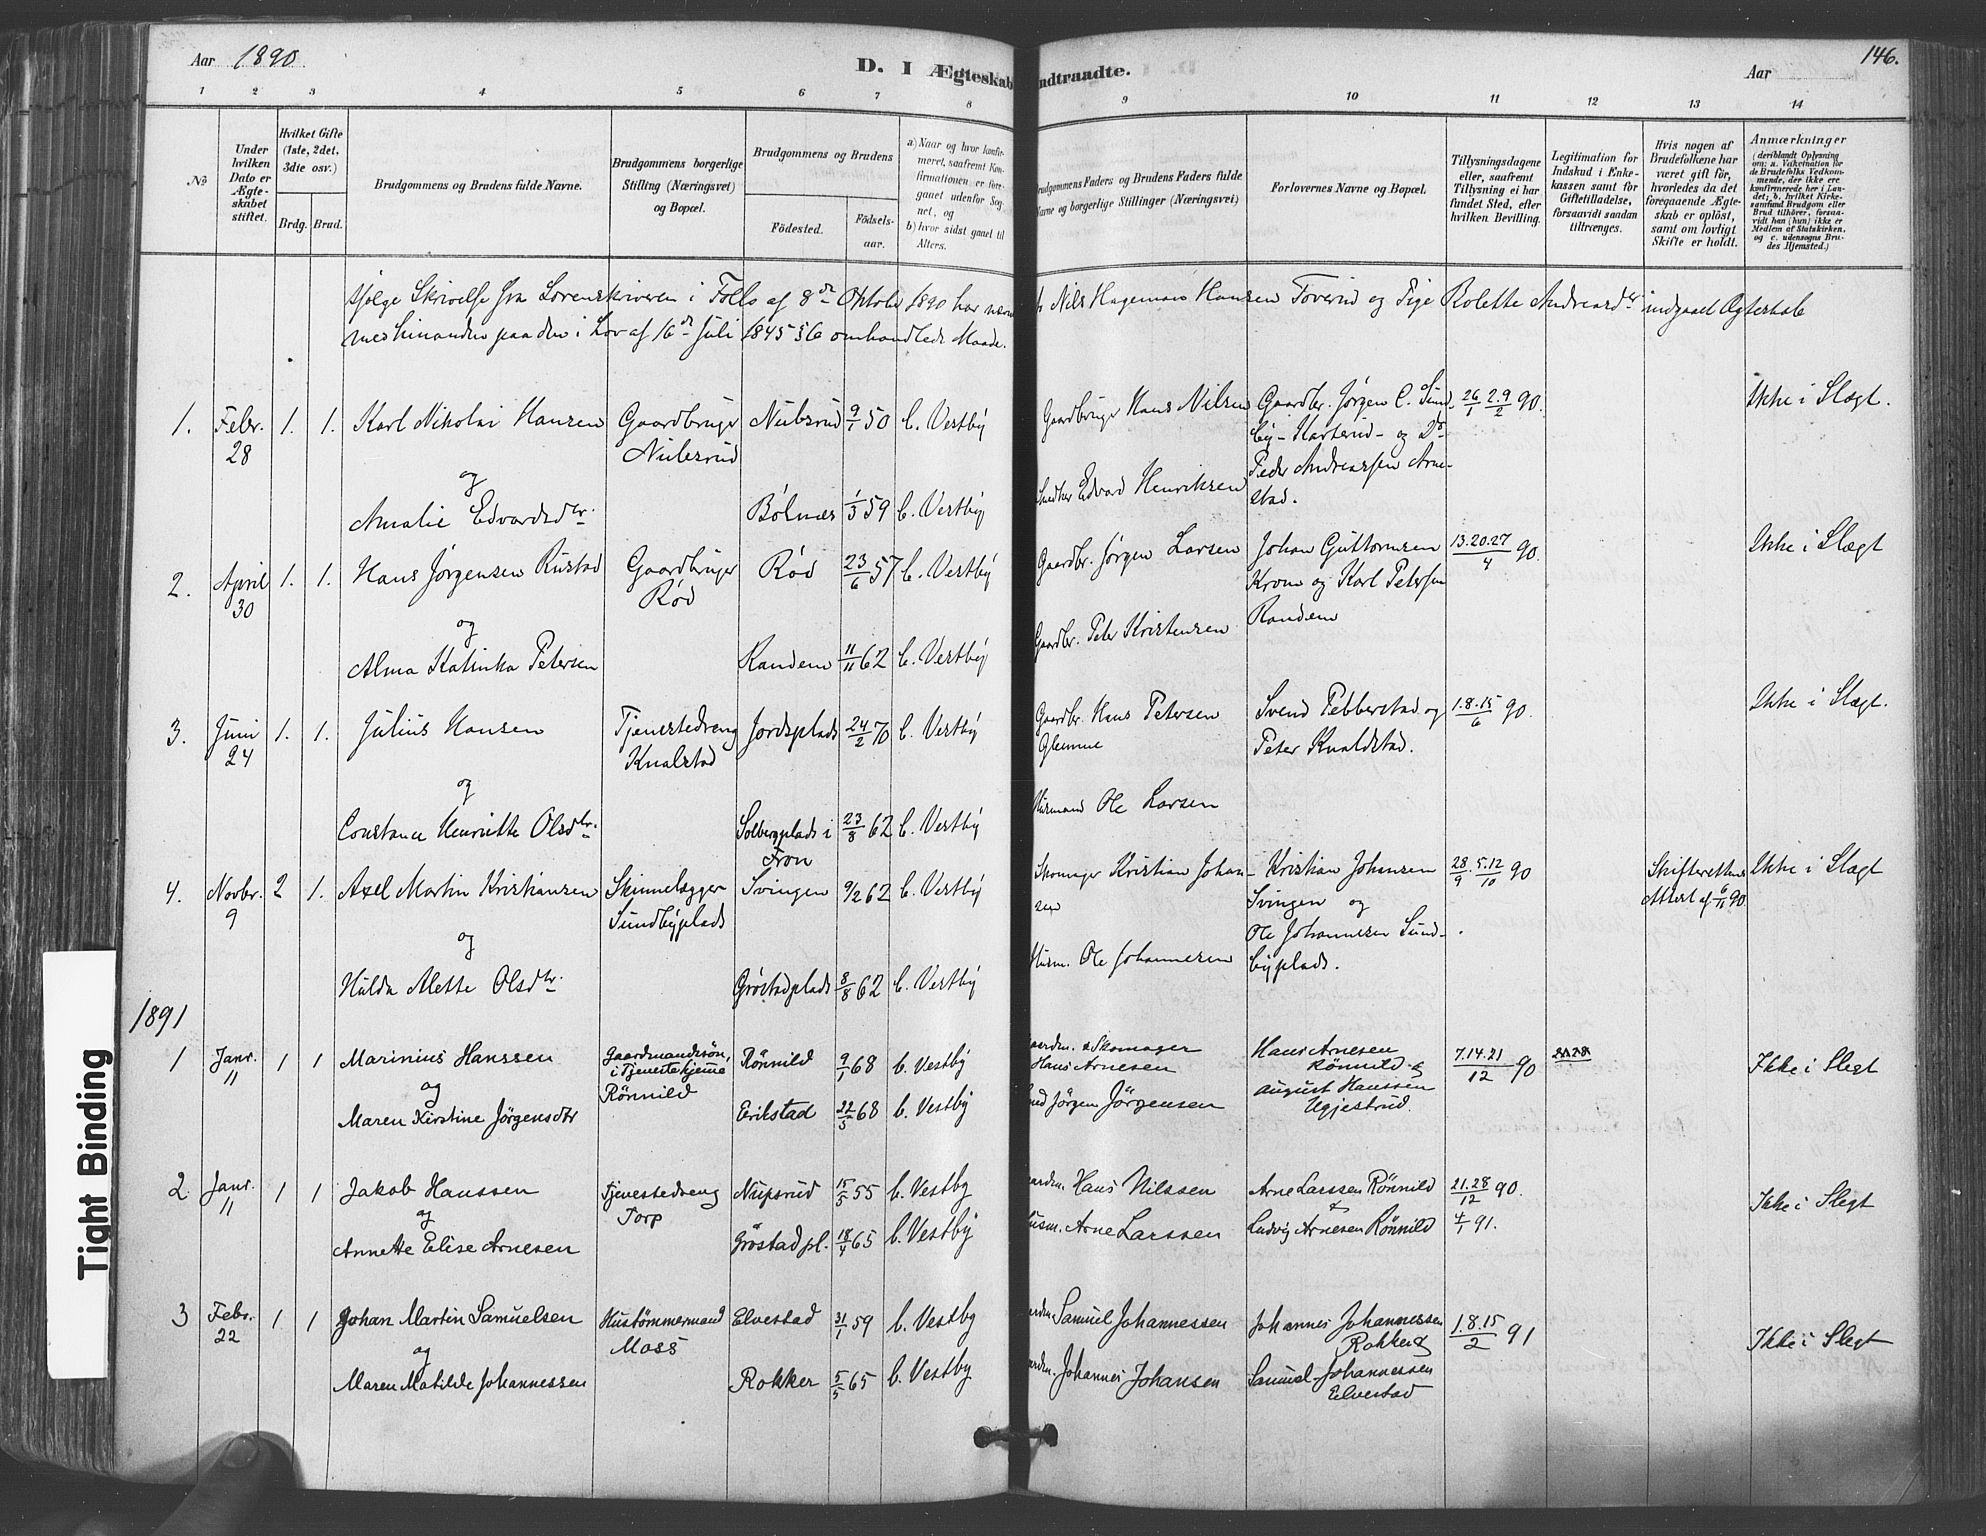 Aar 1890.
D. I Ægteskab indtraadte.
Aar
146.
1 2 3 4 5 6 7 8 9 10 11 12 13 14
No
Under hvilken Dato er Ægteskabet stiftet.
Hvilket Gifte (1ste, 2det, 3die osv.)
Brdg. Brud.
Brudgommens og Brudens fulde Navne.
Brudgommens borgerlige Stilling (Næringsvei) og Bopæl.
Brudgommens og Brudens
Fødested.
Fødselsaar.
a) Naar og hvor konfirmeret, saafremt Konfirmationen er foregaaet udenfor Sognet, og
b) hvor sidst gaaet til Alters.
Brudgommens Faders og Brudens Faders fulde Navne og borgerlige Stillinger (Næringsvei)
Forlovernes Navne og Bopæl.
Tillysningsdagene eller, saafremt Tillysning ei har fundet Sted, efter hvilken Bevilling.
Legitimation for Indskud i Enkekassen samt for Giftetilladelse, forsaavidt saadan tiltrænges.
Hvis nogen af Brudefolkene har været gift før, hvorledes da det foregaaende Ægteskab er opløst, samt om lovligt Skifte er holdt.
Anmærkninger
(deriblandt Oplysning om: a. Vakcination for de Brudefolks Vedkommende, der ikke ere konfirmerede her i Landet; b. hvilket Kirkesamfund Brudgom eller Brud tilhører, forsaavidt han (hun) ikke er Medlem af Statskirken, og c. udensogns Brudes Hjemsted.)
ifølge Skrivelse fra Sorenskriveren i Follo af 8de Oktober 1890 har Nils Hageman Hansen Toverud og Pige Bolette Andreasdr indgaaet Ægteskab
med hinanden paa den i Lov af 16de Juli 1845 § 6 omhandlede Maade.
1. Febr. 28 1. 1. Karl Nikolai Hansen Gaardbruger Nubsrud Nubsrud 9/1 50 b. Vestby Gaardbruger Hans Nilsen Gaardbr. Jørgen C. Sundby - Karterud - og Do Peder Andreassen Arnestad. 26/1 2.9/2 90. Ikke i Slægt.
og
Amalie Edvardsdtr. Bølnæs 1/3 59 b. Vestby Snedker Edvard Henriksen
2. April 30 1. 1. Hans Jørgensen Rustad Gaardbruger Rød Rød 23/6 57 b. Vestby Gaardbr. Jørgen Larsen Johan Guttormsen Krom og Karl Petersen Randem 13.20.27/4 90. Ikke i Slægt
og
Alma Katinka Petersen Randem 11/11 62 b. Vestby Gaardbr. Peter Kristensen
3. Juni 24 1. 1. Julius Hansen Tjenestedreng Knalstad Jordsplads 24/2 70 b. Vestby Gaardbr. Hans Petersen Glenne Svend Pebberstad og Peter Knaldstad. 1.8.15/6 90. Ikke i Slægt.
og
Constance Henriette Olsdtr. Solbergplads i Fron 23/8 62 b. Vestby Husmand Ole Larsen
4. Novbr. 9 2 1. Axel Martin Kristiansen Skinnelægger Sundbyplads Svingen 9/2 62 b. Vestby Skomager Kristian Johansen Kristian Johansen Svingen og Ole Johannesen Sundbyplads. 28/9. 5.12/10 90 Skifterettens Attest af 6/11 90. Ikke i Slægt
og
Hulda Alette Olsdtr. Grøstadplads 8/8 62 b. Vestby Husm. Ole Johannesen
1891
1 Janr. 11 1 1 Marinius Hanssen Gaardmandssøn, i Tjeneste hjemme Rönnild Rönnild 9/1 68 b. Vestby Gaardm. & Skomager Hans Arnesen Hans Arnesen Rönnild & August Hanssen Ugjestrud. 7.14.21/12 90 Ikke i Slegt
og
Maren Kirstine Jörgensdtr Erikstad 22/5 68 b. Vestby Jörgen Jörgensen
2 Janr. 11 1 1 Jakob Hanssen Tjenestedreng Torp Nupsrud 15/5 55 b. Vestby Gaardm. Hans Nilssen Arne Larssen Rönnild & Ludvig Arnesen Rönnild 21.28/12 90. 4/1 91. Ikke i Slegt
og
Annette Elise Arnesen Gröstad pl. 18/4 65 b. Vestby Husm. Arne Larssen
3 Febr. 22 1 1 Johan Martin Samuelsen Hustömmermand Moss Elvestad 31/1 59 b. Vestby Gaardm. Samuel Johannessen Johannes Johannessen Rokker & Samuel Johannessen Elvestad 1.8.15/2 91 Ikke i Slegt
og
Maren Matilde Johannessen Rokker 5/5 65 b. Vestby Gaardm. Johannes Johansen
Tight Binding